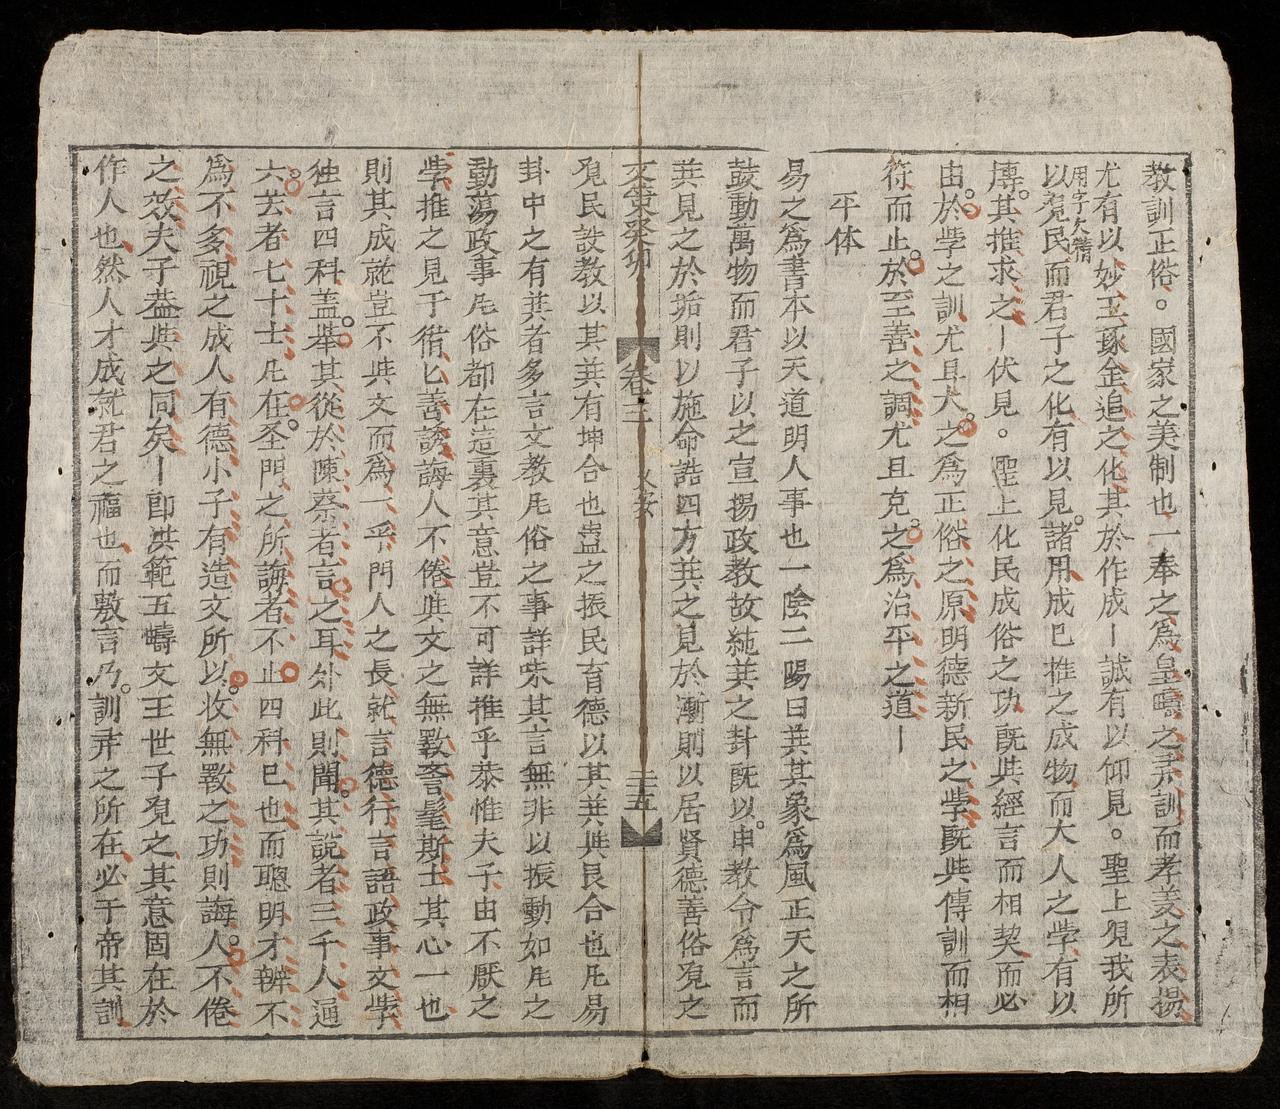 教訓正俗。國家之美制也一奉之為皇疇之彛訓而孝義之表揚
尤有以妙玉琢金追之化其於作成丨誠有以仰見。聖上覌我所
用字大繒
以覌民而君子之化有以見諸用成已推之成物而大人之斈有以
傳其推求之丨伏見。聖上化民成俗之功既與經言而相契而必
由於斈之訓尤且大之為正俗之原明德新民之斈既與傳訓而相
符而止於至善之調尤且克之為治平之道丨
平体
易之為書本以天道明人事也一陰二陽曰巽其象為風正天之所
鼓動萬物而君子以之宣揚政教故純巽之卦既以申教令為言而
巽見之於垢則以施命誥四方巽之見於漸則以居賢德善俗覌之
卷三
二五
覌民設教以其巽有坤合也蠱之振民育德以其巽與艮合也凡易
卦中之有巽者多言文教凡俗之事詳味其言無非以振動如凡之
動蕩政事凡俗都在這裏其意豈不可詳推乎恭惟夫子由不厭之
斈推之見于循匕善誘誨人不倦與文之無斁誉髦斯士其心一也
則其成就豈不與文而為一乎門人之長就言德行言語政事文斈
独言四科盖举其從於陳蔡者言之耳外此則聞其說者三千人通
六芸者七十士凡在圣門之所誨者不止四科已也而聰明才辨不
為不多視之成人有德小子有造文所以收無斁之功則誨人不倦
之效夫子盖與之同矣丨即洪範五疇文王世子覌之其意固在於
作人也然人才成就君之福也而敷言乃訓彛之所在必于帝其訓